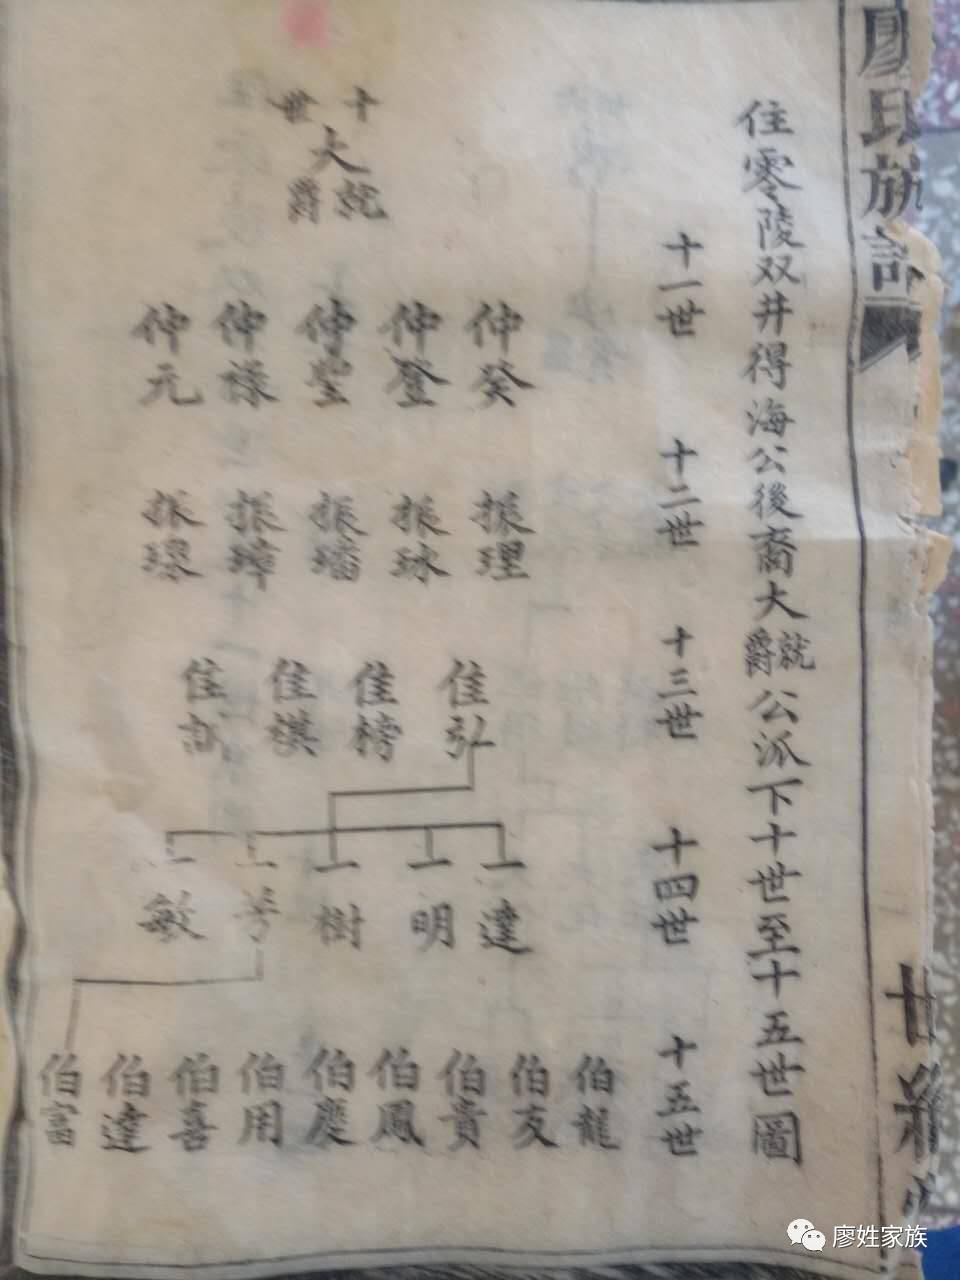 廖氏族
住零陵双井得海公後裔大就爵公派下十世至十五世圖
十世
大就爵
十一世
仲癸
仲登
仲豐
仲祿
仲元
十二世
振理
振球
振璠
振璋
振琼
十三世
佳弘
佳榜
佳祺
佳
十四世
一達
一明
一樹
一芳
一敏
十五世
伯龍
伯友
伯貴
伯鳳
伯慶
伯用
伯喜
伯達
伯富
廿
廖姓家族